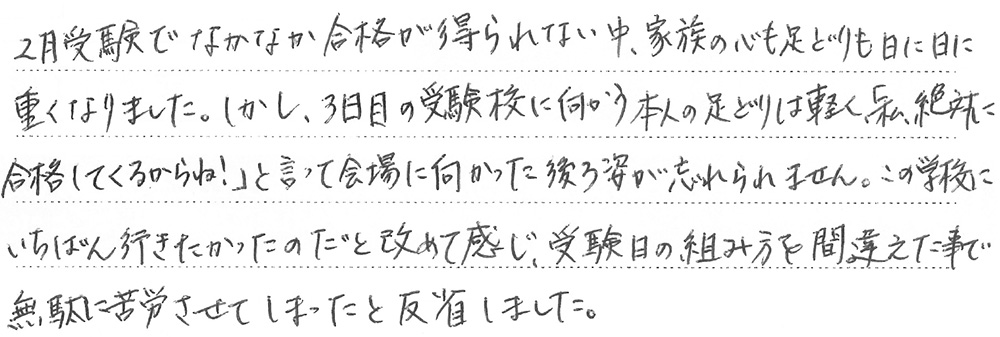 2月受験でなかなか合格が得られない中、家族の心も足どりも日に日に
重くなりました。しかし、3日目の受験校に向かう本人の足どりは軽く、「私、絶対に
合格してくるからね!」と言って会場に向かった後ろ姿が忘れられません。この学校に
いちばん行きたかったのだと改めて感じ、受験日の組み方を間違えた事で
無駄に苦労させてしまったと反省しました。